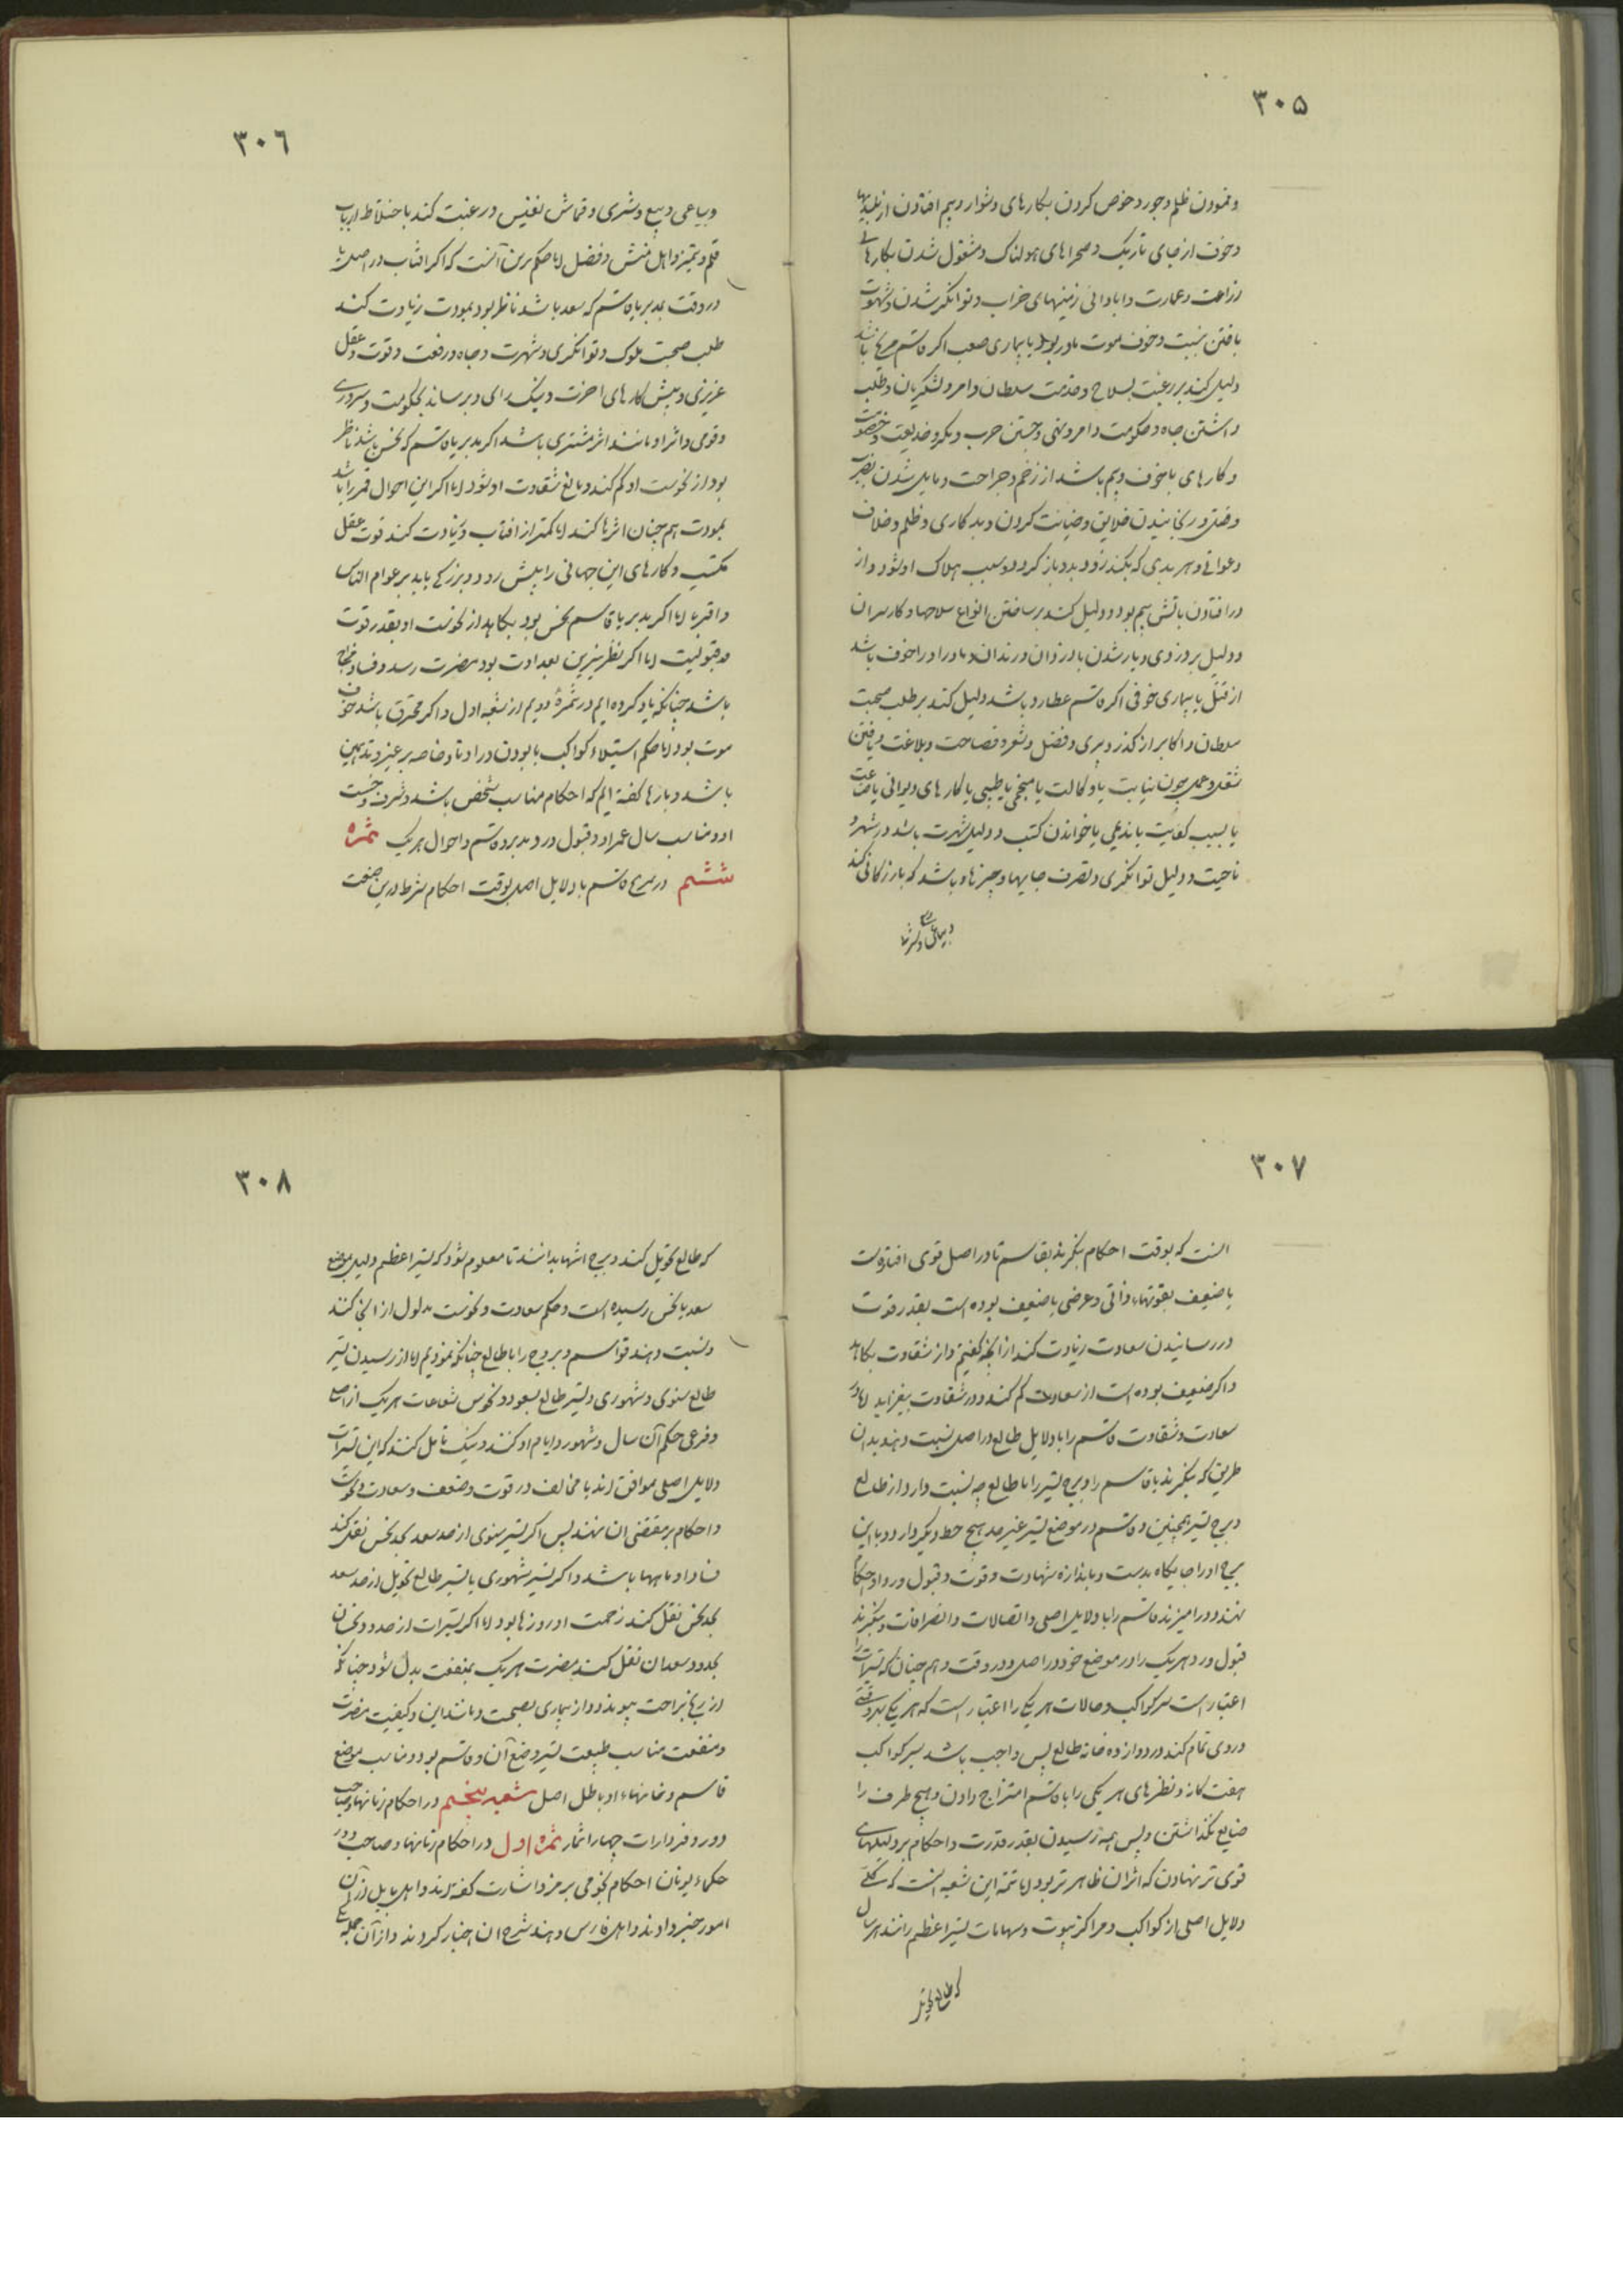 ۳۰۵
و نمودن ظلم و جور و خوض کردن بکارهای دشوار و بیم افتادن از بلندیها
و خوف از جای تاریک و صحراهای هولناک و مشغول شدن بکارهای
زراعت و عمارت و ابادانی زمینهای خراب و توانگر شدن و شهوت
یافتن و خوف موت مادر بود یا بیماری صعب اگر قاسم مریخ باشد
دلیل کند بر رغبت بسلاح و خدمت سلطان و امر و لشکریان و طلب
داشتن جاه و حکومت و امر و نهی و جستن حرب و مکر و خدیعت و خصومت
و کارهای با خوف و بیم باشد از زخم و جراحت و مایل شدن
و رنجانیدن خلایق و خیانت کردن و بدکاری و ظلم و خلاف
و هر بدی که بکند زود بدو باز گردد و سبب هلاک او شود و از
در افتادن باتش بیم بود و دلیل کند بر ساختن انواع سلاحها و کار
و دلیل بر دزدی و یار شدن با دزدان و رندان و مادر او را خوف باشد
از قتل یا بیماری خوفی اگر قاسم عطارد باشد دلیل کند بر طلب صحبت
سلطان و اکابر از و فضل و شعر و فصاحت و بلاغت و یافتن
شغل و عمل چون نیابت یا وکالت یا منجمی یا طبیبی یا کارهای دیوانی یا
یا بسبب کفایت یا ندیمی یا خواندن کتب و دلیل شهرت باشد در شهر و
ناحیت و دلیل توانگری و تصرف جایها و چیزها و باشد که بازرگانی کند
۳۰۶
و بیاعی و بیع و شری و قماش نفیس و رغبت کند باختلاط ارباب
قلم و تمیز و اهل منش و فضل اما حکم برین آنست که اگر افتاب در اصل یا
در وقت بمدبر یا قاسم که سعد باشد ناظر بود بمودت زیادت کند
طلب صحبت ملوک و توانگری و شهرت و جاه و رفعت و قوت و عقل
عزیزی و پیش کارهای اخرت و نیک رای و برساند بحکومت و سروری
و قوی و اثر او مانند اثر مشتری باشد اگر بمدبر یا قاسم که نحس باشد ناظر
بود از نحوست او کم کند و مانع شقاوت او شود اما اگر این احوال قمر را باشد
بمودت هم چنان اثرها کند اما کمتر از افتاب و زیادت کند قوت عقل
و کارهای این جهانی را پیش رود و بزرگی یابد بر عوام الناس
و اقربا اما اگر بمدبر یا قاسم نحس بود بکاهد از نحوست او بقدر قوت
و قبولیت اما اگر نظر نیرین بعداوت بود مضرت رسد و فساد مزاج
باشد چنانکه یاد کرده‌ایم در ثمرهٔ دویم از شعبه اول و اگر محترق باشد خوف
موت بود اما حکم استیلاء کواکب با بودن در اوتاد و خاصه بر همین
باشد و بارها گفته‌ایم که احکام مناسب شخص باشد و شرف و خست
او و مناسب سال عمر او و قبول و رد مدبر و قاسم و احوال هریک ثمره
ششم در مزج قاسم با دلایل اصل بوقت احکام شرط درین صنعت
۳۰۷
انست که بوقت احکام بنگرند بقاسم تا در اصل قوی افتاده است
یا ضعیف بقوتهاء ذاتی و عرضی یا ضعیف بوده است بقدر قوت
در رسانیدن سعادت زیادت کند از انچه گفتیم و از شقاوت بکاهد
و اگر ضعیف بوده است از سعادت کم کند و در شقاوت بیفزاید اما در
سعادت و شقاوت قاسم را با دلایل طالع در اصل نسبت دهند بدان
طریق که بنگرند تا قاسم را و برج تسیر را با طالع چه نسبت دارد از طالع
و برج تسیر همچنین و قاسم در موضع تسیر غیر حد هیچ حظ دیگر دارد و با این
برج او را جایگاه بدست و باندازه شهادت و قوت و قبول و رد او احکام
نهند و درامیزند قاسم را با دلایل اصلی و اتصالات و انصرافات و بنگرند
قبول و رد هریک را در موضع خود در اصل و در وقت و هم چنان که تسیرات را
اعتبار است سیر کواکب و حالات هر یکی را اعتبار است که هر یکی
دوری تمام کند در دوازده خانه طالع پس واجب باشد سیر کواکب
هفت گانه و نظرهای هر یکی را با قاسم امتزاج دادن و هیچ طرف را
ضایع نگذاشتن و پس همه رسیدن بقدر قدرت و احکام بر دلیلهای
قوی تر نهادن که اثر ان ظاهر تر بود اما تتمه این شعبه انست که کلی
دلایل اصلی از کواکب و مراکز بیوت و سهامات تسیر اعظم رانند هر سال
که طالع تحویل
۳۰۸
که طالع تحویل کند و برج انتها بدانند تا معلوم شود که تسیر اعظم دلیل بموضع
سعد یا نحس رسیده است و حکم سعادت و نحوست مدلول از انجا کنند
و نسبت دهند قواسم و بروج را با طالع چنانکه نمودیم اما از رسیدن تسیر
طالع سنوی و شهوری و تسیر طالع بسعود و نحوس شعاعات هریک از اصلی
و فرعی حکم آن سال و شهور و ایام او کنند و نیک تامل کنند که این تسیرات
دلایل اصلی موافق‌اند یا مخالف در قوت و ضعف و سعادت و نحوست
و احکام بر مقتضی ان نهند پس اگر تسیر سنوی از حد سعد بحد نحس نقل کند
فساد او ماهها باشد و اگر تسیر شهوری یا تسیر طالع تحویل از حد سعد
بحد نحس نقل کند زحمت او روزها بود اما اگر تسیرات از حدود نحسان
بحدود سعدان نقل کند مضرت هریک بمنفعت بدل شود چنانکه
از رنج براحت پیوندد و از بیماری بصحت و مانند این و کیفیت مضرت
و منفعت مناسب طبیعت تسیر و ضع آن و قاسم بود و مناسب موضع
قاسم و خانهاء او با طالع اصل شعبه پنجم در احکام زمانها و صاحب
دور و فردارات چهار اثمار ثمره اول در احکام زمانها و صاحب دور
حکماء یونان احکام نجومی برمز و اشارت گفته‌اند و اهل بابل از آن
امور خبر دادند و اهل فارس و هند شرح ان اخبار کردند و از آن جمله